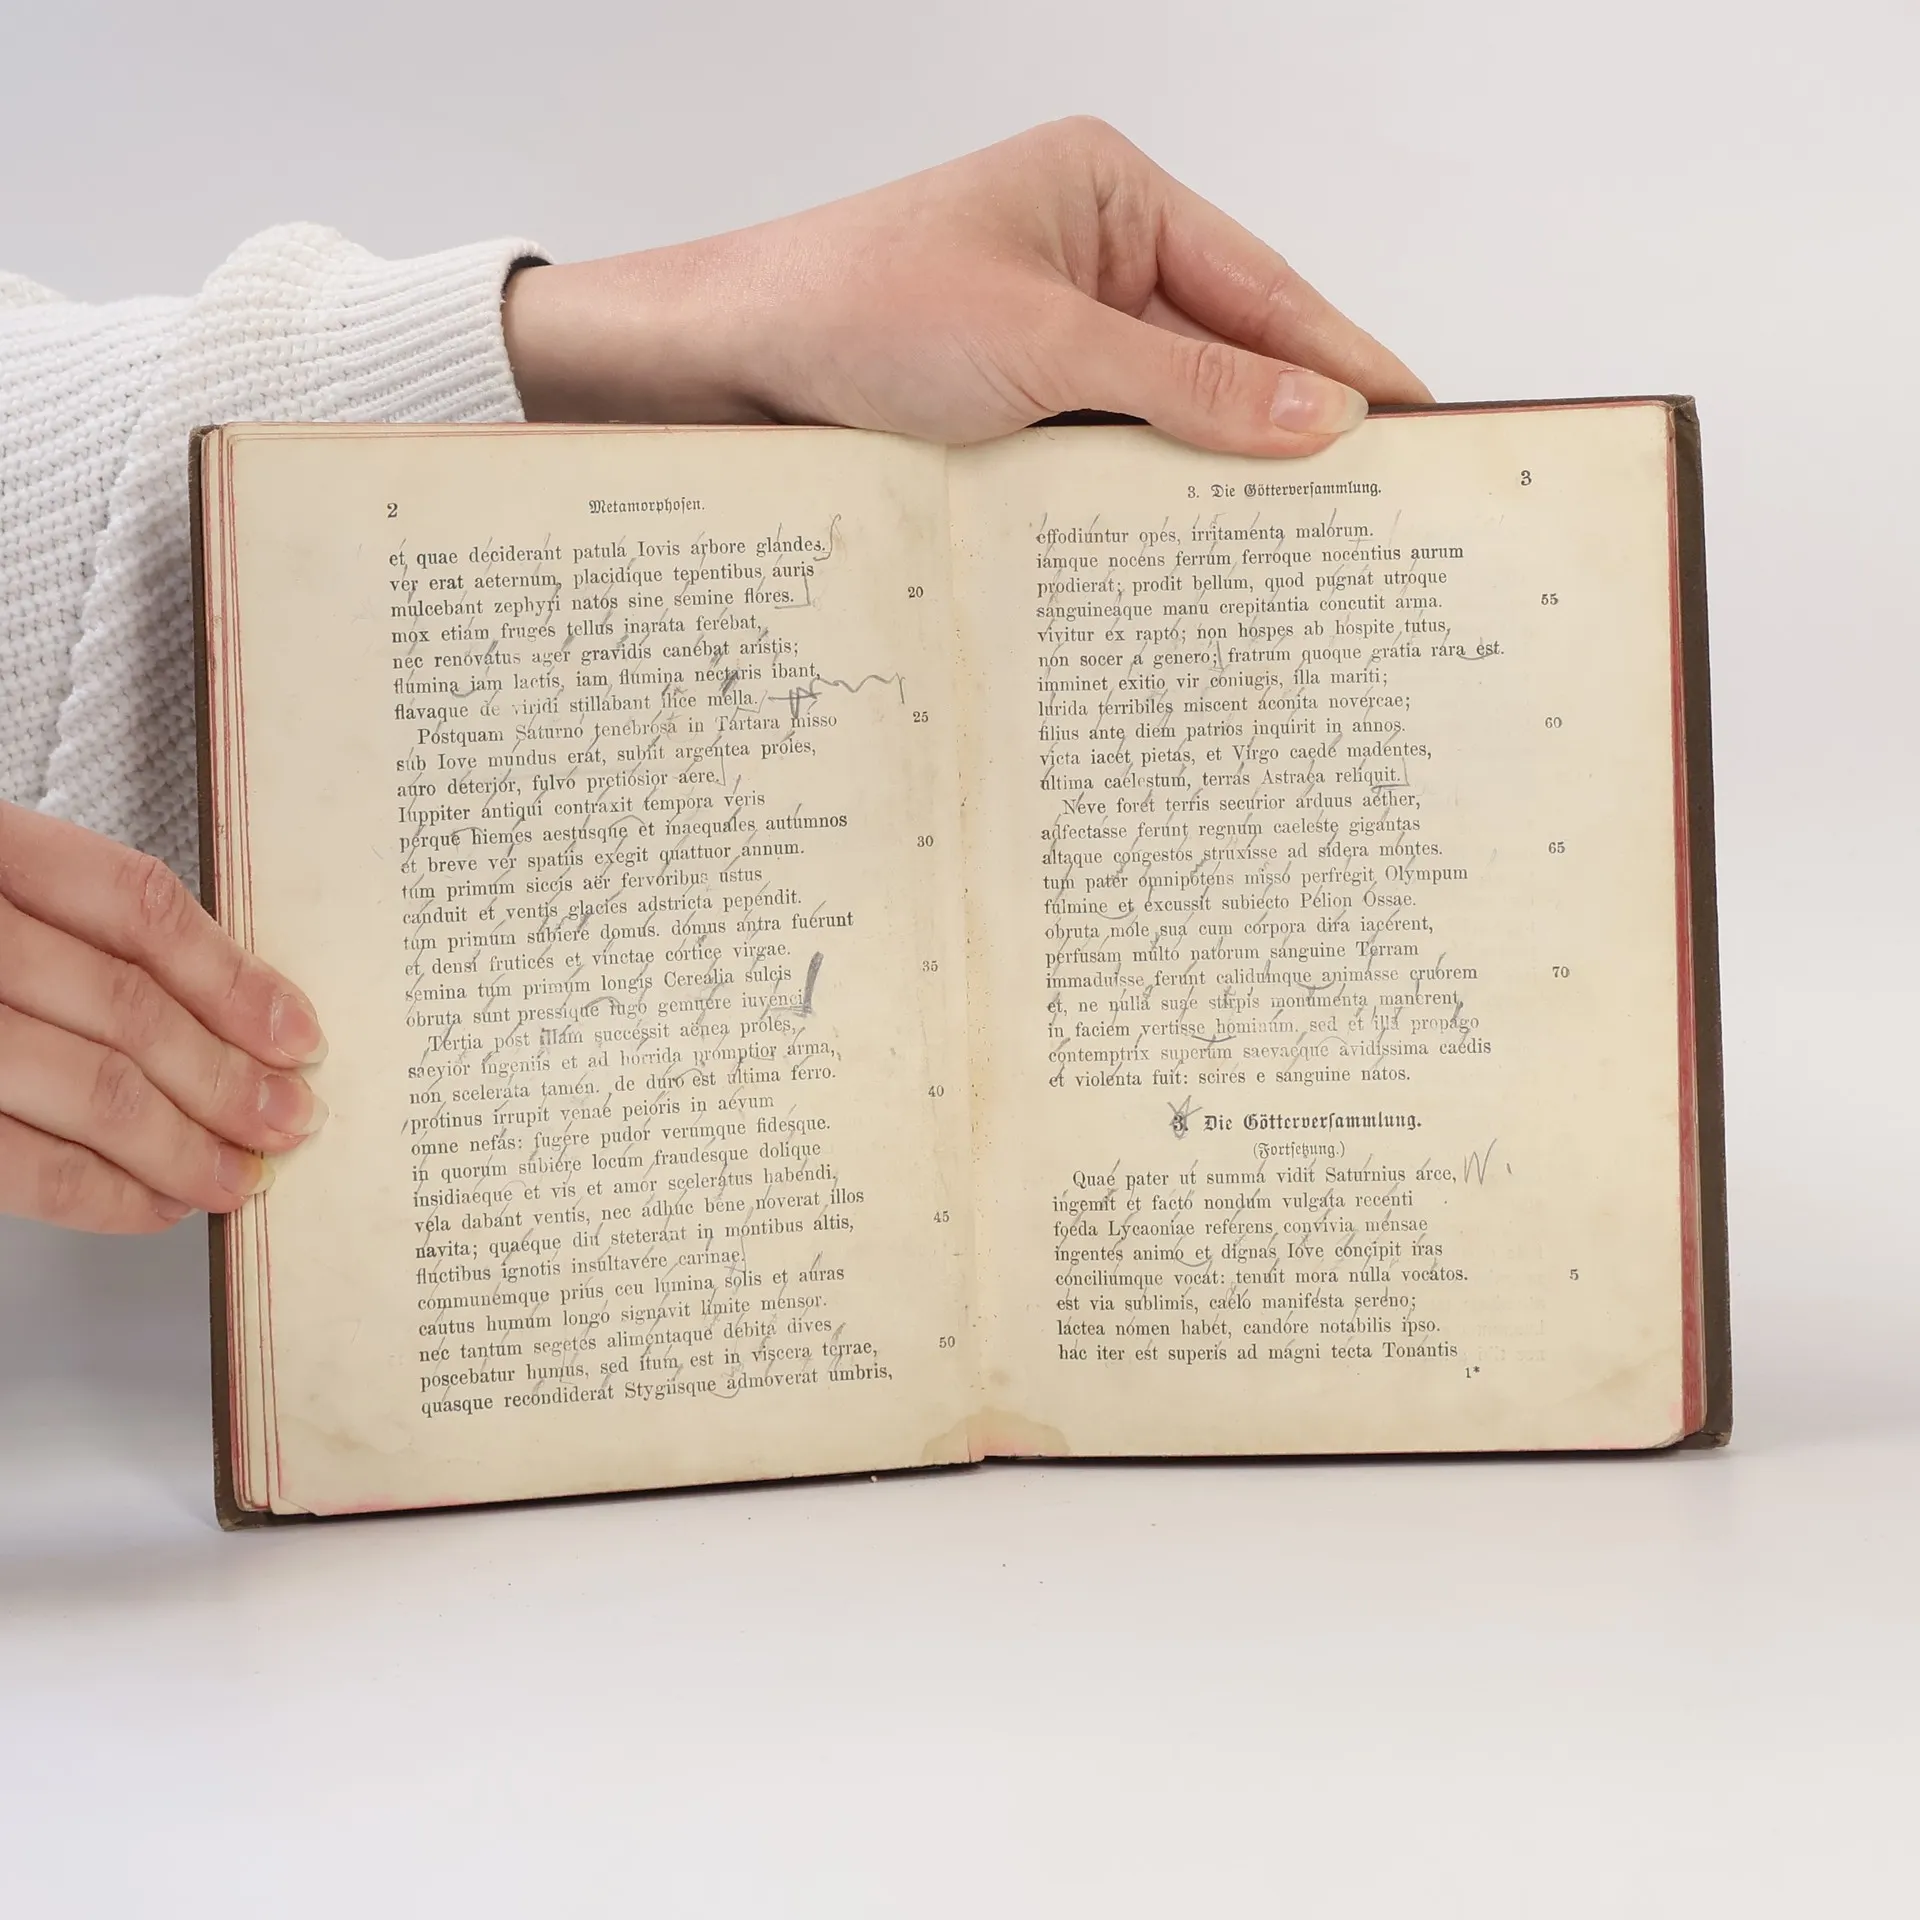 2
Metamorphosen.
et quae deciderant patula Iovis arbore glandes.
ver erat aeternum, placidique tepentibus auris
mulcebant zephyri natos sine semine flores. 20
mox etiam fruges tellus inarata ferebat,
nec renovatus ager gravidis canebat aristis;
flumina iam lactis, iam flumina nectaris ibant,
flavaque de viridi stillabant ilice mella.
Postquam Saturno tenebrosa in Tartara misso 25
sub Iove mundus erat, subiit argentea proles,
auro deterior, fulvo pretiosior aere.
Iuppiter antiqui contraxit tempora veris
perque hiemes aestusque et inaequales autumnos
et breve ver spatiis exegit quattuor annum. 30
tum primum siccis aër fervoribus ustus
canduit et ventis glacies adstricta pependit.
tum primum subiere domus. domus antra fuerunt
et densi frutices et vinctae cortice virgae.
semina tum primum longis Cerealia sulcis 35
obruta sunt pressique iugo gemuere iuvenci.
Tertia post illam successit aënea proles,
saevior ingeniis et ad horrida promptior arma,
non scelerata tamen. de duro est ultima ferro.
protinus irrupit venae peioris in aevum 40
omne nefas: fugere pudor verumque fidesque.
in quorum subiere locum fraudesque dolique
insidiaeque et vis et amor sceleratus habendi.
vela dabant ventis, nec adhuc bene noverat illos
navita; quaeque diu steterant in montibus altis, 45
fluctibus ignotis insultavere carinae.
communemque prius ceu lumina solis et auras
cautus humum longo signavit limite mensor.
nec tantum segetes alimentaque debita dives
poscebatur humus, sed itum est in viscera terrae, 50
quasque recondiderat Stygiisque admoverat umbris,
3. Die Götterversammlung.
3
effodiuntur opes, irritamenta malorum.
iamque nocens ferrum ferroque nocentius aurum
prodierat; prodit bellum, quod pugnat utroque
sanguineaque manu crepitantia concutit arma. 55
vivitur ex rapto; non hospes ab hospite tutus,
non socer a genero; fratrum quoque gratia rara est.
imminet exitio vir coniugis, illa mariti;
lurida terribiles miscent aconita novercae;
filius ante diem patrios inquirit in annos. 60
victa iacet pietas, et Virgo caede madentes,
ultima caelestum, terras Astraea reliquit.
Neve foret terris securior arduus aether,
adfectasse ferunt regnum caeleste gigantas
altaque congestos struxisse ad sidera montes. 65
tum pater omnipotens misso perfregit Olympum
fulmine et excussit subiecto Pelion Ossae.
obruta mole sua cum corpora dira iacerent,
perfusam multo natorum sanguine Terram
immaduisse ferunt calidumque animasse cruorem 70
et, ne nulla suae stirpis monumenta manerent,
in faciem vertisse hominum. sed et illa propago
contemptrix superum saevaeque avidissima caedis
et violenta fuit: scires e sanguine natos.
3. Die Götterversammlung.
(Fortsetzung.)
Quae pater ut summa vidit Saturnius arce,
ingemit et facto nondum vulgata recenti
foeda Lycaoniae referens convivia mensae
ingentes animo et dignas Iove concipit iras
conciliumque vocat: tenuit mora nulla vocatos. 5
est via sublimis, caelo manifesta sereno;
lactea nomen habet, candore notabilis ipso.
hac iter est superis ad magni tecta Tonantis
1*